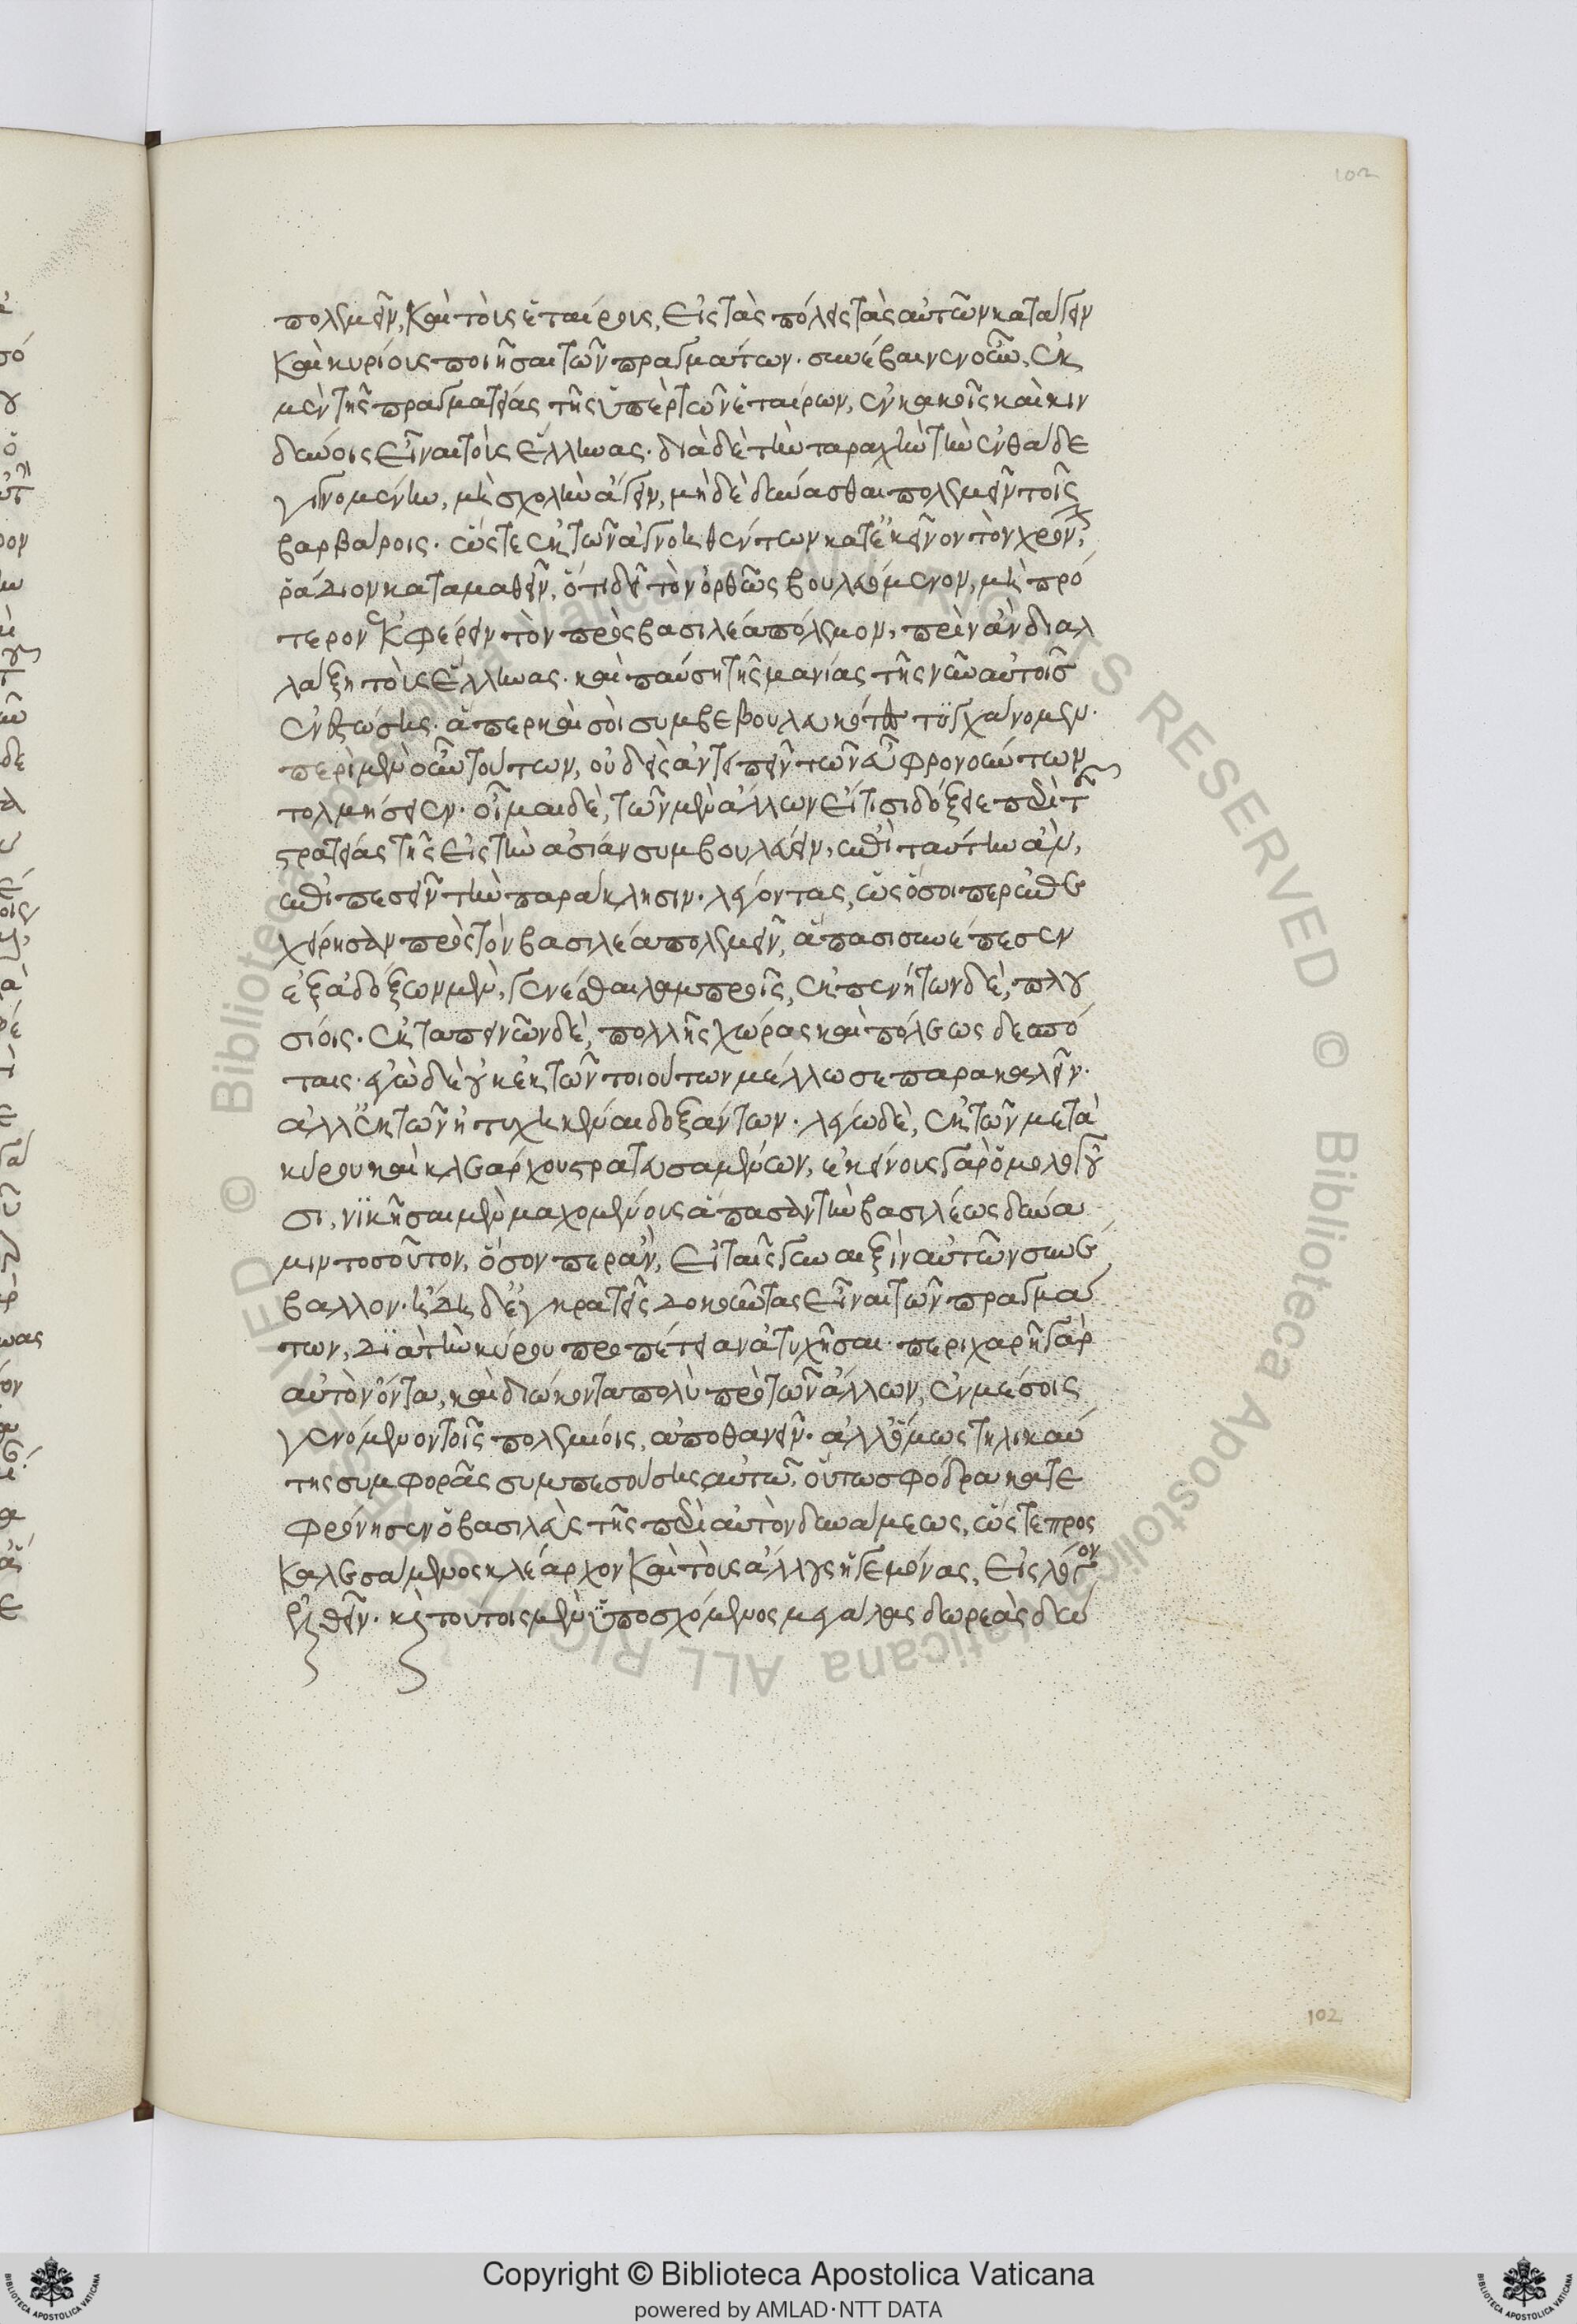 102
πολεμεῖν, καὶ τοὺς ἑταίρους, εἰς τὰς πόλεις τὰς αὐτῶν καταγαγεῖν
καὶ κυρίους ποιῆσαι τῶν πραγμάτων. συνέβαινεν οὖν, ἐκ
μὲν τῆς πραγματείας τῆς ὑπὲρ τῶν ἑταίρων, ἐν κακοῖς καὶ κιν
δύνοις εἶναι τοὺς ἕλληνας. διὰ δὲ τὴν ταραχὴν τὴν ἐνθάδε
γιγνομένην, μὴ σχολὴν ἄγειν, μὴ δὲ δύνασθαι πολεμεῖν τοῖς
βαρβάροις. ὥστε ἐκ τῶν ἀγνοηθέντων κατ' ἐκεῖνον τὸν χρόνον,
ῥάδιον καταμαθεῖν, ὅτι δεῖ τὸν ὀρθῶς βουλευόμενον, μὴ πρό
τερον ἐκφέρειν τὸν πρὸς βασιλέα πόλεμον, πρὶν ἂν διαλ
λάξῃ τοὺς ἕλληνας. καὶ παύσῃ τῆς μανίας τῆς νῦν αὐτοῖς
ἐνεστώσης. ἅπερ καὶ σοὶ συμβεβουλευκότες τυγχάνομεν.
περὶ μὲν οὖν τούτων, οὐδεὶς ἀντειπεῖν τῶν εὖ φρονούντων
τολμήσειεν. οἶμαι δὲ, τῶν μὲν ἄλλων εἴ τισι δόξειε περὶ τῆς
στρατείας τῆς εἰς τὴν ἀσίαν συμβουλεύειν, ἐπὶ ταύτην ἂν,
ἐπιπεσεῖν τὴν παράκλησιν. λέγοντας, ὡς ὅσοι περ ἐπε
χείρησαν πρὸς τὸν βασιλέα πολεμεῖν, ἅπασι συνέπεσεν
ἐξ ἀδόξων μὲν, γενέσθαι λαμπροῖς, ἐκ πενήτων δὲ, πλου
σίοις. ἐκ ταπεινῶν δὲ, πολλῆς χώρας καὶ πόλεως δεσπό
ταις. ἐγὼ δὲ οὐκ ἐκ τῶν τοιούτων μέλλω σε παρακαλεῖν.
ἀλλ' ἐκ τῶν ἠτυχηκέναι δοξάντων. λέγω δὲ, ἐκ τῶν μετὰ
κύρου καὶ κλεάρχου στρατευσαμένων, ἐκείνους γὰρ ὁμολογοῦ
σι, νικῆσαι μὲν μαχομένους ἅπασαν τὴν βασιλέως δύνα
μιν τοσοῦτον, ὅσον περ ἂν, εἰ ταῖς γυναιξὶν αὐτῶν συνέ
βαλλον. ἤδη δ' ἐγκρατεῖς δοκοῦντας εἶναι τῶν πραγμά
των, διὰ τὴν κύρου προπέτειαν ἀτυχῆσαι. περιχαρῆ γὰρ
αὐτὸν ὄντα, καὶ διώκοντα πολὺ πρὸ τῶν ἄλλων, ἐν μέσοις
γενόμενον τοῖς πολεμίοις, ἀποθανεῖν. ἀλλ' ὅμως τηλικαύ
της συμφορᾶς συμπεσούσης αὐτῶ, οὕτω σφόδρα κατε
φρόνησεν ὁ βασιλεὺς τῆς περὶ αὐτὸν δυνάμεως, ὥστε προς
καλεσάμενος κλέαρχον καὶ τοὺς ἄλλους ἡγεμόνας, εἰς λόγον
ἐλθεῖν. καὶ τούτοις μὲν ὑποσχόμενος μεγάλας δωρεὰς δώ
102
Copyright © Biblioteca Apostolica Vaticana
powered by AMLAD·NTT DATA